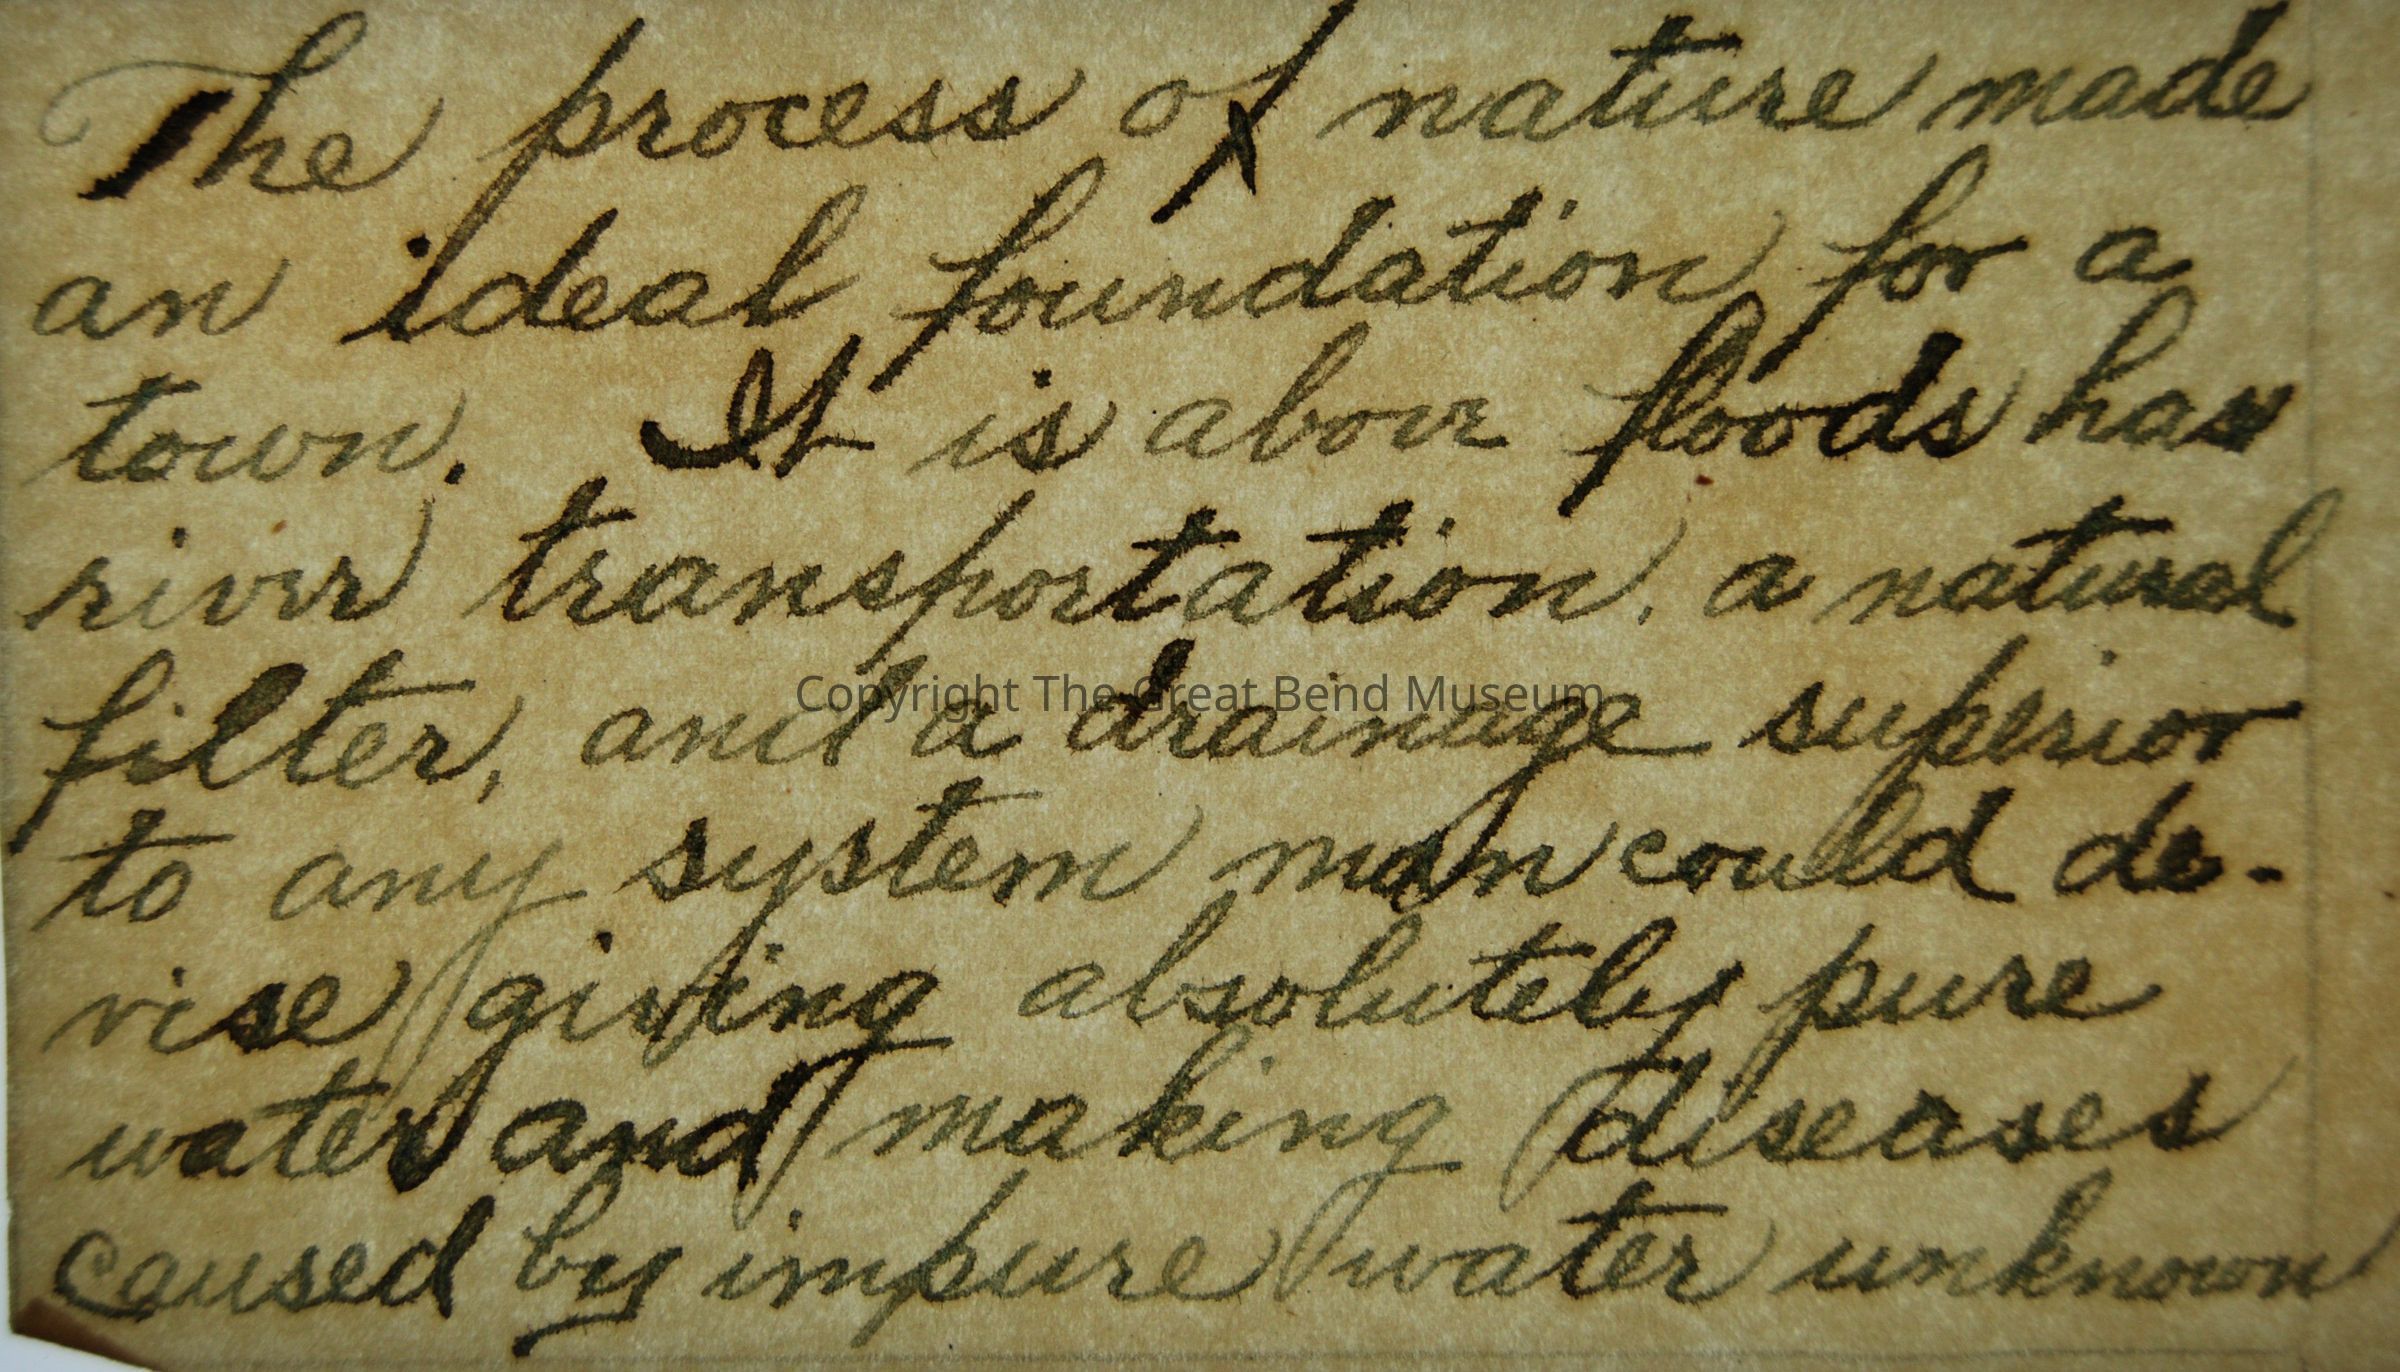 The process of nature made
an ideal foundation for a
town. It is above floods has
river transportation, a natural
filter, and a drainage superior
Copyright The Great Bend Museum
to any system man could de-
vise giving absolutely pure
water and making diseases
caused by impure water unknown